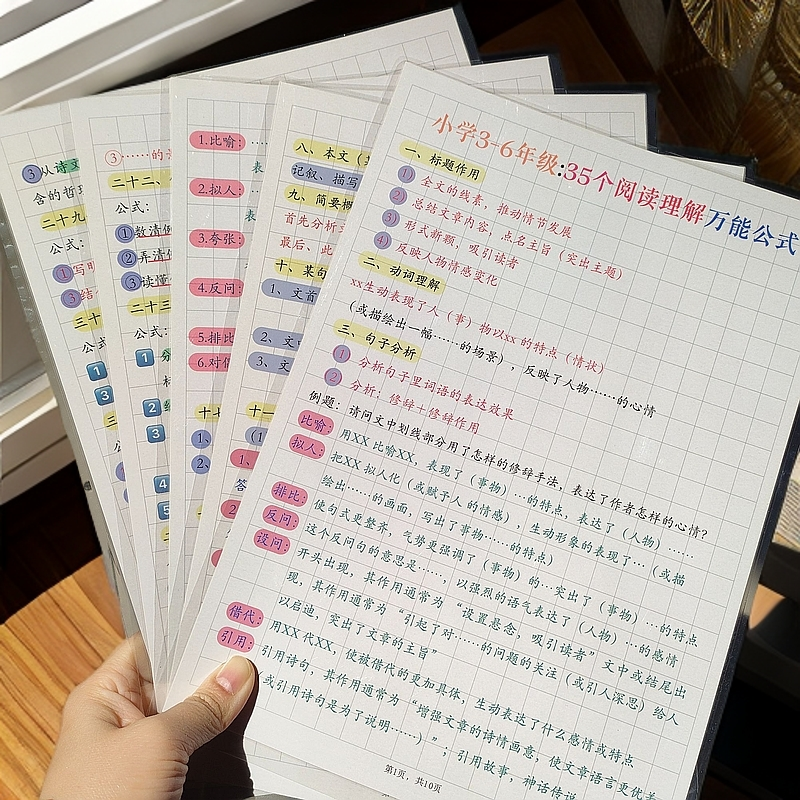 小学3-6年级:35个阅读理解万能公式
一、标题作用
① 全文的线索，推动情节发展
② 总结文章内容，点名主旨（突出主题）
③ 形式新颖，吸引读者
④ 反映人物情感变化
二、动词理解
xx生动表现了人（事）物以xx的特点（情状）
（或描绘出一幅……的场景），反映了人物……的心情
三、句子分析
① 分析句子里词语的表达效果
② 分析：修辞+修辞作用
例题：请问文中划线部分用了怎样的修辞手法，表达了作者怎样的心情?
比喻: 用XX 比喻XX，表现了（事物）…的特点，表达了（人物）……
拟人: 把XX 拟人化（或赋予人的情感），生动形象的表现了…（或描
绘出……的画面，写出了事物……的特点）
排比: 使句式更整齐，气势更强调了（事物）的…突出了（事物）…的特点
反问: 这个反问句的意思是……，以强烈的语气表达了（人物）…的感情
设问: 开头出现，其作用通常为“设置悬念，吸引读者”文中或结尾出
现，其作用通常为“引起了对……的问题的关注（或引人深思）给人
以启迪，突出了文章的主旨”
借代: 用XX 代XX，使被借代的更加具体，生动表达了什么感情或特点
引用: 引用诗句，其作用通常为“增强文章的诗情画意，使文章语言更优美
（或引用诗句是为了说明……）”；引用故事，神话传说
第1页，共10页
八、本文（
记叙、描写
九、简要概
首先分析
最后、此
十、某句
1、文首
2、文
3、文
十一
(1
1、
答
2
1.比喻:
表
2.拟人:
表
3.夸张:
4.反问:
5.排比
6.对偶
十七
1、
2、
③……的
二十二、
公式:
①数清
②弄清
③读懂
二十三
公式:
1
2
4
5
③从诗文
含的哲理
二十九
公式:
①写明
③结
三十
公式
1
3
三
公